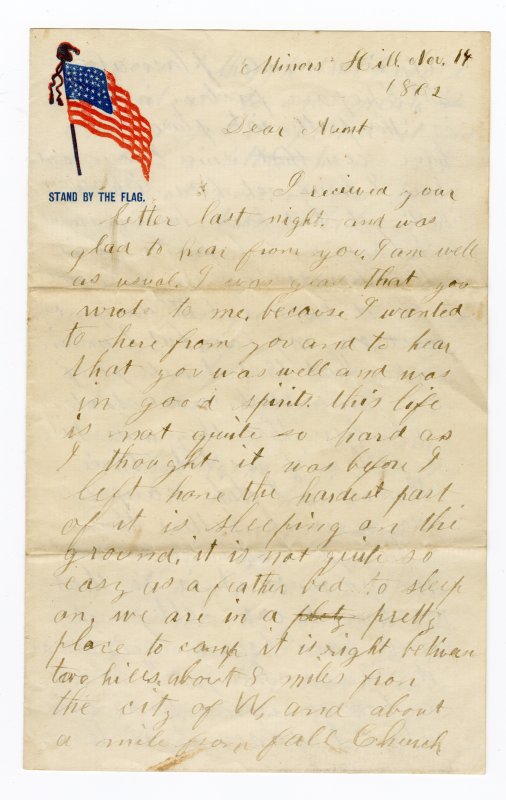 Miners Hill. Nov. 14
1862
Dear Aunt
STAND BY THE FLAG.
I recieved your
letter last night. and was
glad to hear from you. I am well
as usual. I was glad that you
wrote to me, because I wanted
to here from you and to hear
that you was well and was
in good spirits. this life
is not quite so hard as
I thought it was before I
left home the hardest part
of it is sleeping on the
ground. it is not quite so
easy as a feather bed to sleep
on, we are in a pretty
place to camp it is right between
two hills. about 8 miles from
the city of W, and about
a mile from fall Church